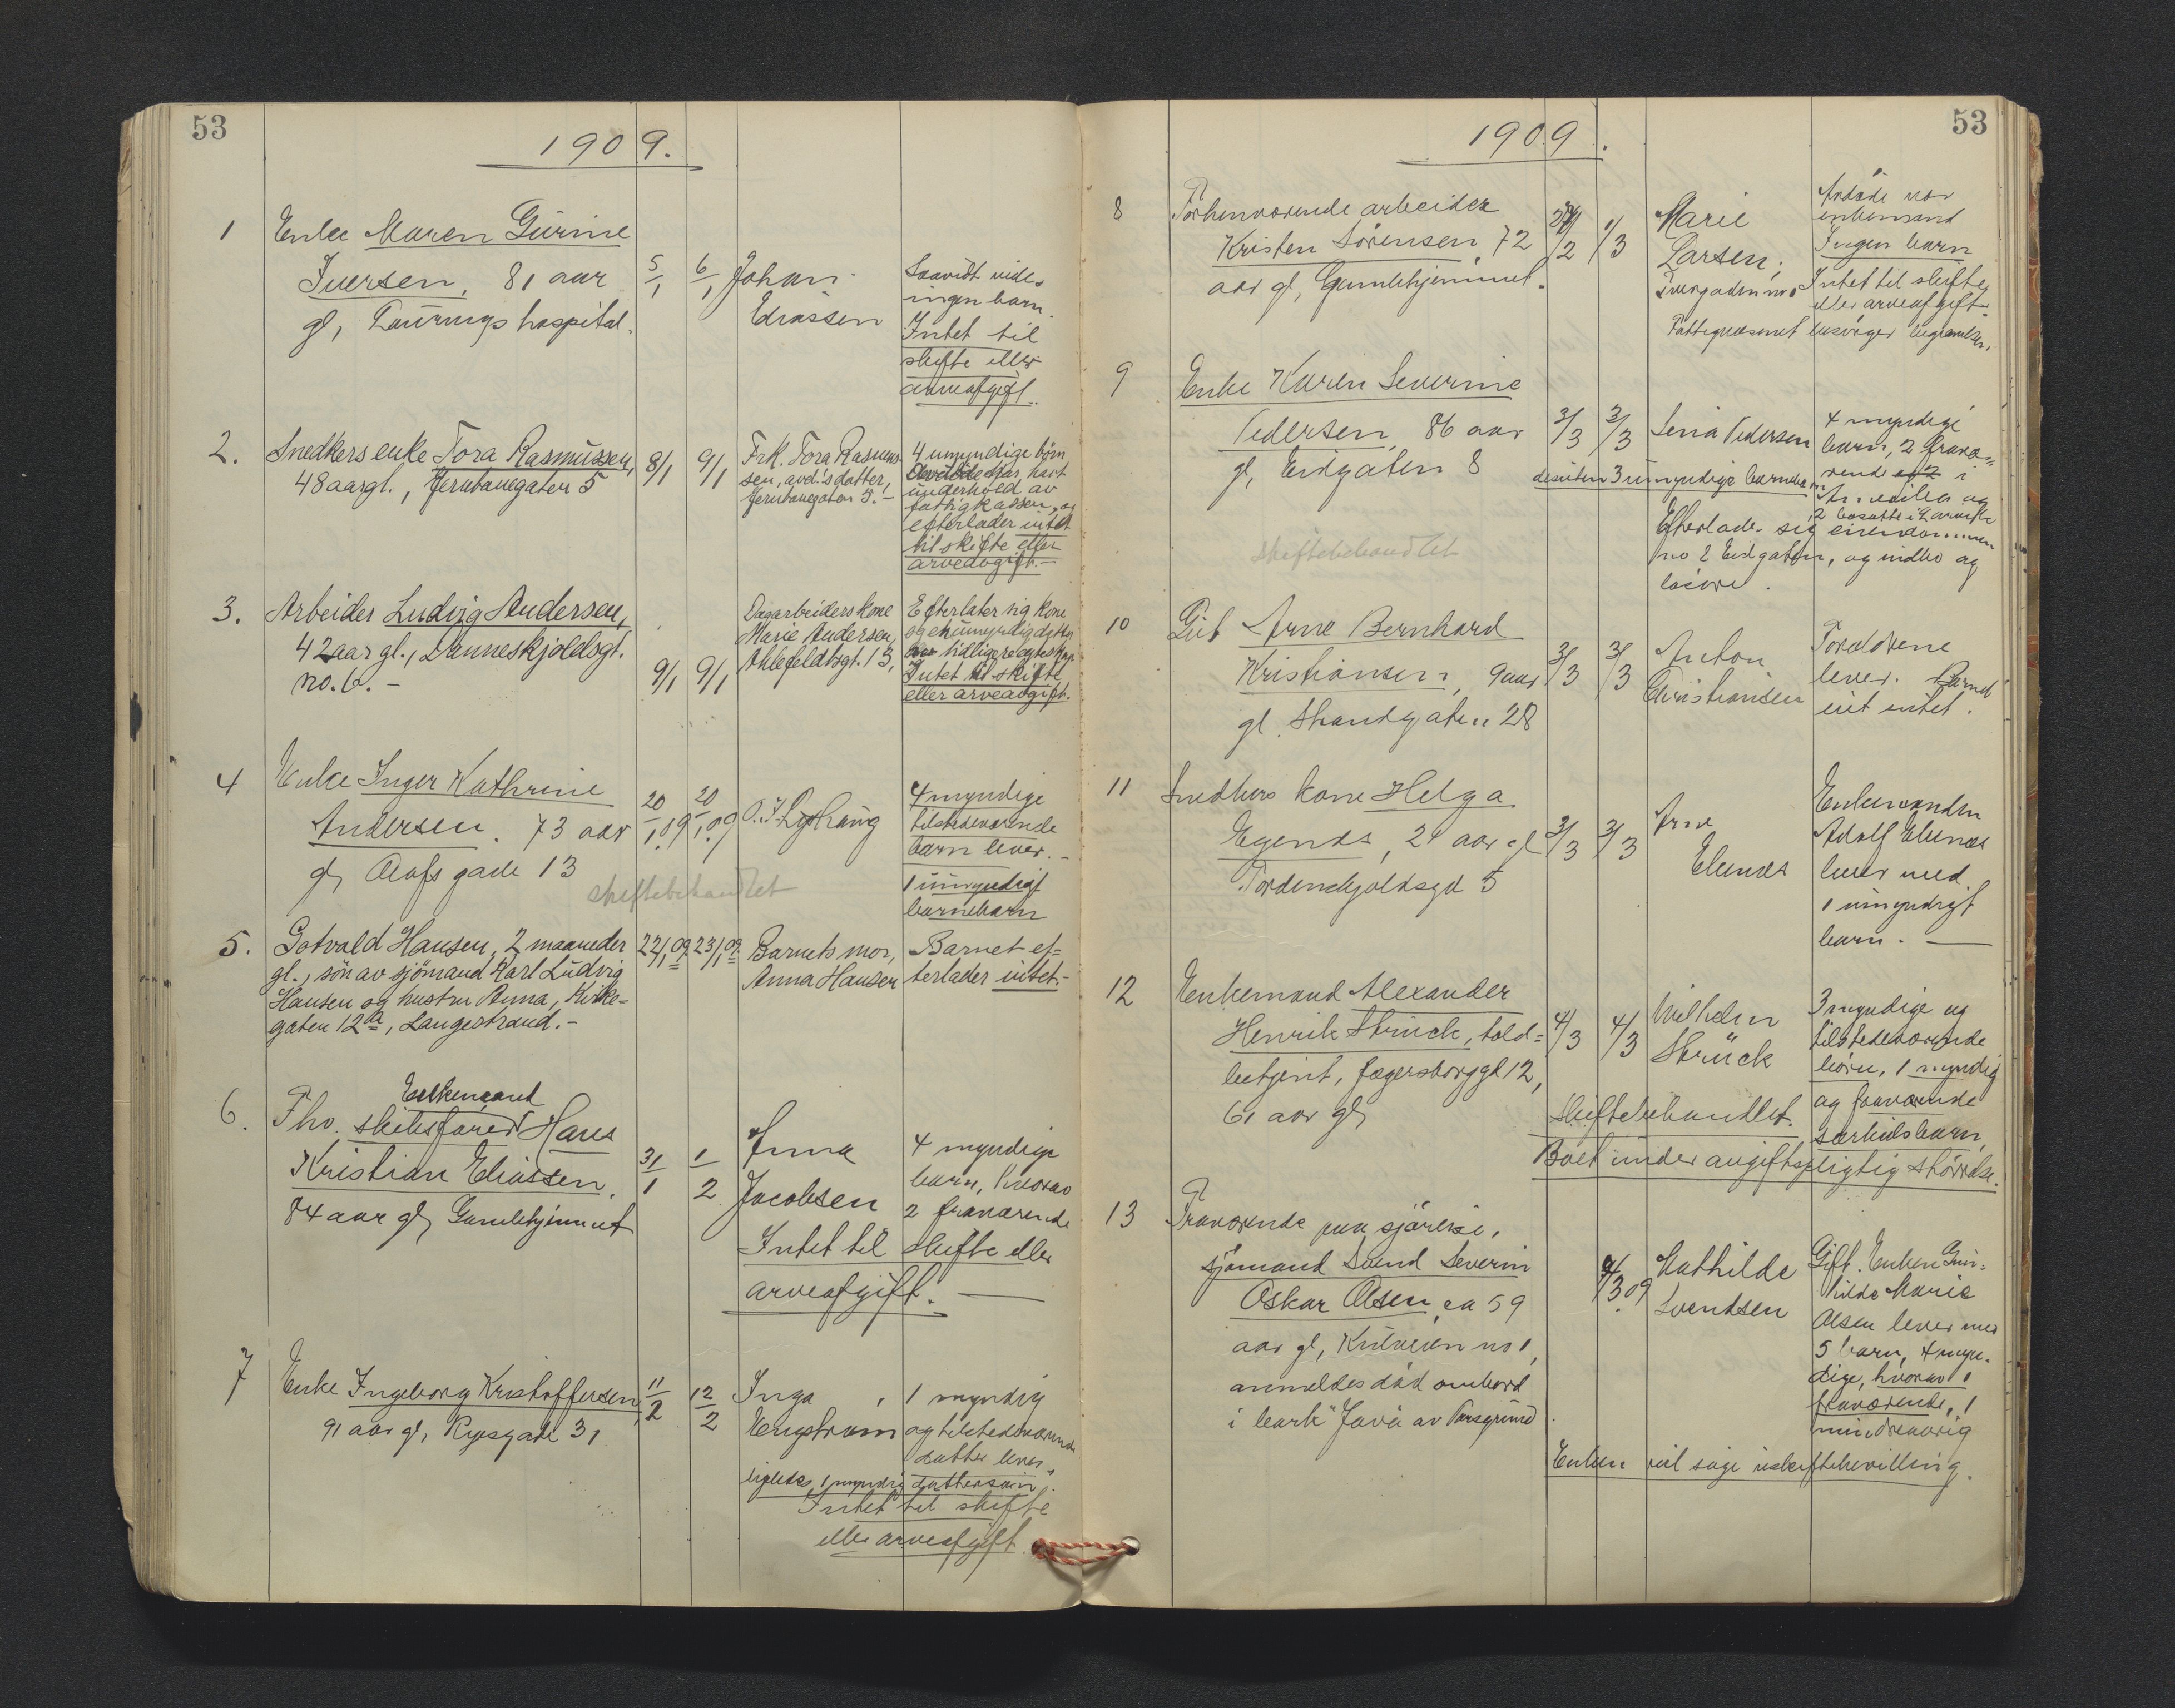 53
1909.
1 Enke Maren Gurine
Iversen, 81 aar 5/1 6/1 Johan
gl, Laurings hospital. Eliassen
Saavidt vides
ingen barn.
Intet til
skifte eller
arveafgift.
2. Snedkers enke Tora Rasmussen, 8/1 9/1
48 aar gl., Jernbanegaten 5
Frk. Tora Rasmus-
sen, avd.'s datter,
Jernbanegaten 5.-
4 umyndige börn
Avdöde har hatt
underhold av
fattigkassen, og
efterlader intet
til skifte eller
arveavgift.-
3. Arbeider Ludvig Andersen,
42 aar gl., Danneskjoldsgt.
no. 6. - 9/1 9/1
Dagarbeiders kone
Marie Andersen,
Ahlefeldtsgt. 13,
Efterlater sig kone
og en umyndig datter
av tidligere egteskap
Intet til skifte
eller arveavgift.
4 Enke Inger Kathrine
Andersen. 73 aar 20/1.09 20/1.09
gl, Olafs gade 13
skiftebehandlet
4 myndige
tilstedeværende
barn lever. -
1 umyndigt
barnebarn
5. Gotvald Hansen, 2 maaneder 22/1.09 23/1.09
gl., sön av sjömand Karl Ludvig
Hansen og hustru Anna, Kirke=
gaten 12a, Langestrand.-
Barnets mor,
Anna Hansen
Barnet ef=
terlader intet.-
6. Enkemand
Fhv. skibsförer Hans
Kristian Eliassen, 31/1 1/2
84 aar gl, Gamlehjemmet
Anna
Jacobsen
4 myndige
barn, hvorav
2 fraværende
Intet til skifte eller
arveafgift.
7 Enke Ingeborg Kristoffersen, 11/2 12/2
91 aar gl, Ryesgade 31
Inga
Engstrøm
1 myndig
og tilstedeværende
datter lever,
ligeledes 1 myndig dattersøn.
Intet til skifte
eller arveafgift.
53
1909.
8 Forhenværende arbeider
Kristen Sörensen 72 /2 1/3
aar gl, Gamlehjemmet.
Marie
Larsen,
Tvergaden no 1
Avdöde var
enkemand
Ingen barn
Intet til skifte
eller arveafgift.
Fattigvæsenet besörger begravelsen.
9 Enke Karen Severine
Pedersen, 86 aar 3/3 3/3
gl, Eidgaten 8
Lena Pedersen
4 myndige
barn, 2 fravæ-
rende i
Amerika og
2 bosatte i Larvik
desuten 3 umyndige barnebarn
Efterlader sig eiendommen
no 2 Eidgaten, og indbo og
lösöre.
skiftebehandlet
10 Gut Arne Bernhard
Kristiansen, 9 aar 3/3 3/3
gl. Strandgaten 28
Anton
Christiansen
Forældrene
lever. Barnet
eiet intet.
11 Snedkers kone Helga
Egenæs, 21 aar gl 3/3 3/3
Tordenskjoldsgd 5
Arne
Ekenæs
Enkemanden
Adolf Ekenæs
lever med
1 umyndigt
barn.
12 Enkemand Alexander
Henrik Strück, told= 4/3 4/3
betjent, Fagersborggt 12,
61 aar gl
Vilhelm
Strück
3 myndige og
tilstedeværende
börn, 1 myndig
og fraværende
særkuldsbarn,
Skiftebehandlet.
Boet under avgiftspligtig störrelse.
13 Fraværende paa sjöreise,
sjömand Svend Severin
Oskar Olsen, ca 59 /3 09
aar gl, no 1,
anmeldes död ombord
i bark "Java av Porsgrund
Mathilde
Svendsen
Gift. Enken Gun=
hilda Marie
Olsen lever med
5 barn, 4 myn-
dige, hvorav 1
fraværende, 1
mindreaarig
Enken vil söge uskiftebevilling.